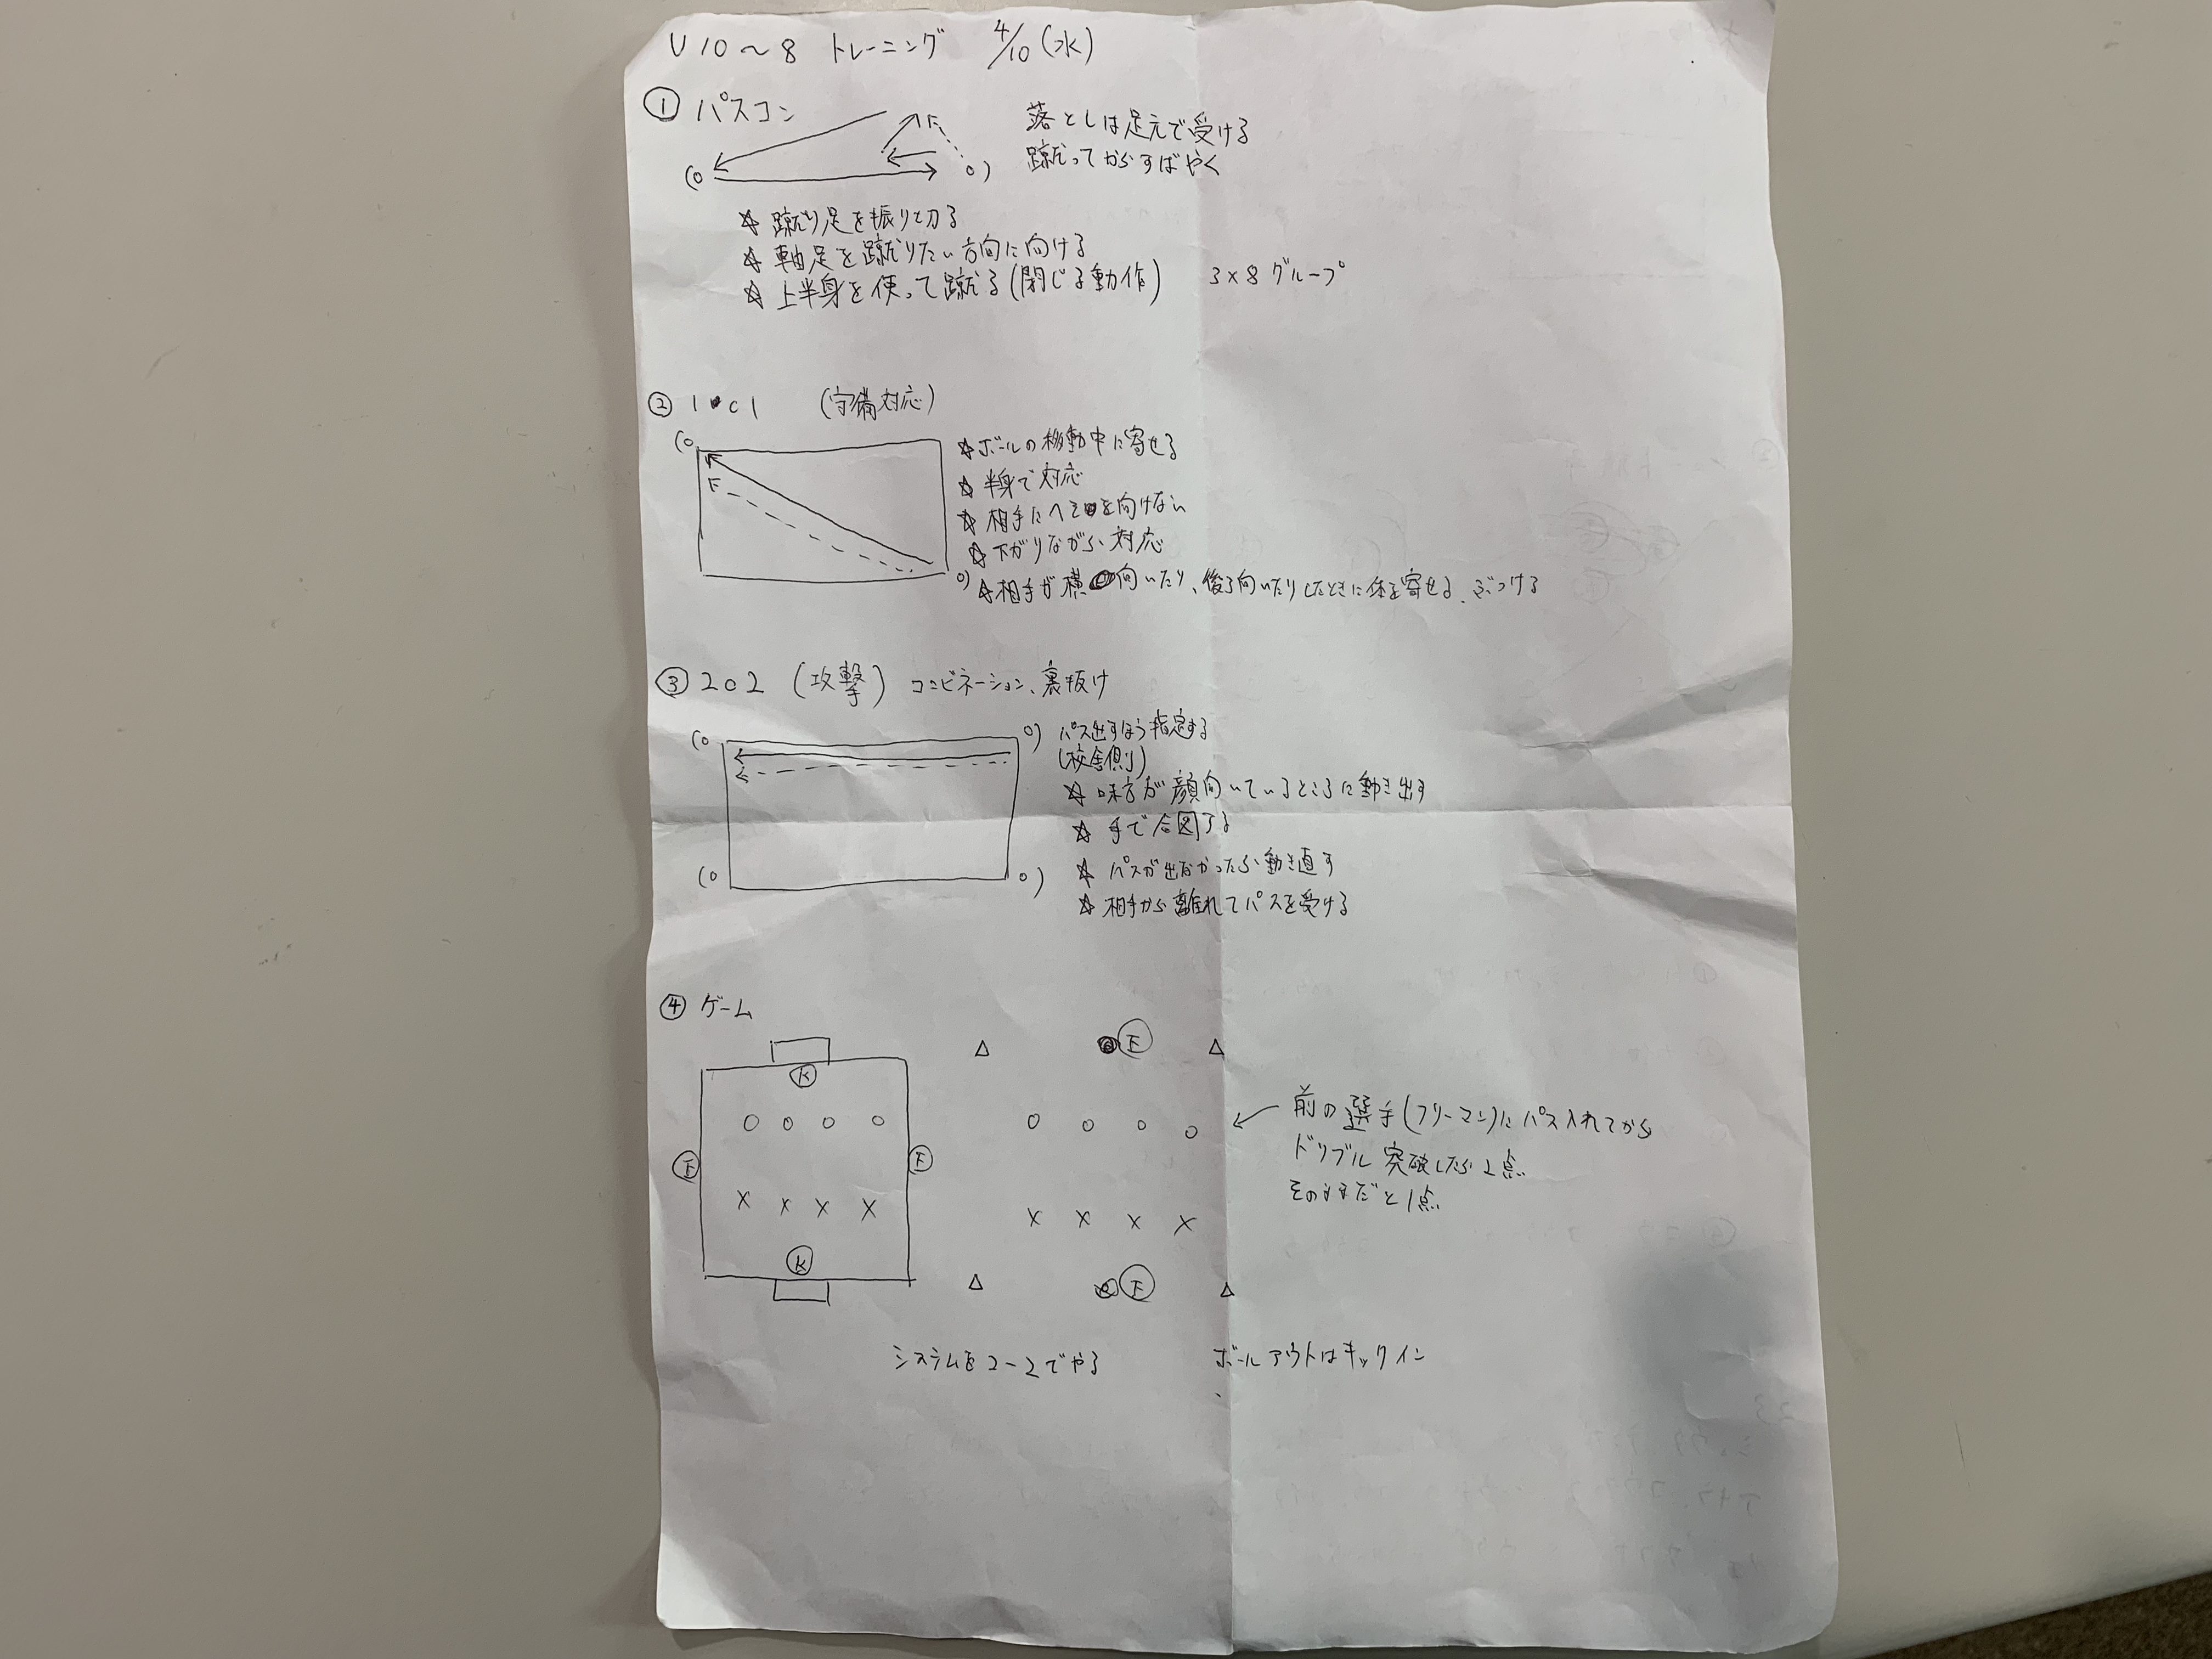 U10～8 トレーニング 4/10(水)
① パスコン
落としは足元で受ける
蹴ってからすばやく
☆ 蹴り足を振り切る
☆ 軸足を蹴りたい方向に向ける
☆ 上半身を使って蹴る(閉じる動作) 3×8グループ
② 1 c 1 (守備対応)
☆ボールの移動中に寄せる
☆ 半身で対応
☆ 相手にヘソを向けない
☆ 下がりながら対応
☆相手が横向いたり、後ろ向いたりしたときに体を寄せる、ぶつける
③ 2 c 2 (攻撃) コンビネーション、裏抜け
パス出すほう指定する
(校舎側)
☆ 味方が顔向いているところに動き出す
☆ 手で合図する
☆ パスが出なかったら動き直す
☆ 相手から離れてパスを受ける
④ ゲーム
F
K
前の選手(フリーマン)にパス入れてから
ドリブル突破したら2点
そのままだと1点
F F
K
F
システムを2-2でやる ボールアウトはキックイン